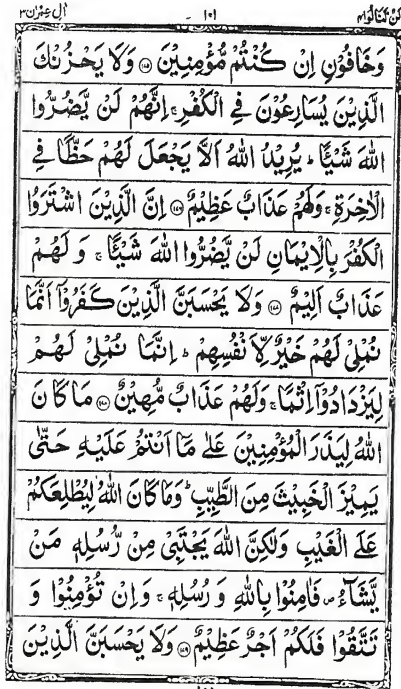 لن تنالوا ۴ ۱۰۱ اٰل عمرٰن ۳
وَخَافُوْنِ اِنْ كُنْتُمْ مُّؤْمِنِيْنَ ۝۱۷۵ وَلَا يَحْزُنْكَ
الَّذِيْنَ يُسَارِعُوْنَ فِي الْكُفْرِ ۚ اِنَّهُمْ لَنْ يَّضُرُّوا
اللّٰهَ شَيْـًٔا ؕ يُرِيْدُ اللّٰهُ اَلَّا يَجْعَلَ لَهُمْ حَظًّا فِي
الْاٰخِرَةِ ۚ وَلَهُمْ عَذَابٌ عَظِيْمٌ ۝۱۷۶ اِنَّ الَّذِيْنَ اشْتَرَوُا
الْكُفْرَ بِالْاِيْمَانِ لَنْ يَّضُرُّوا اللّٰهَ شَيْـًٔا ۚ وَلَهُمْ
عَذَابٌ اَلِيْمٌ ۝۱۷۷ وَلَا يَحْسَبَنَّ الَّذِيْنَ كَفَرُوْۤا اَنَّمَا
نُمْلِيْ لَهُمْ خَيْرٌ لِّاَنْفُسِهِمْ ؕ اِنَّمَا نُمْلِيْ لَهُمْ
لِيَزْدَادُوْۤا اِثْمًا ۚ وَلَهُمْ عَذَابٌ مُّهِيْنٌ ۝۱۷۸ مَا كَانَ
اللّٰهُ لِيَذَرَ الْمُؤْمِنِيْنَ عَلٰى مَاۤ اَنْتُمْ عَلَيْهِ حَتّٰى
يَمِيْزَ الْخَبِيْثَ مِنَ الطَّيِّبِ ؕ وَمَا كَانَ اللّٰهُ لِيُطْلِعَكُمْ
عَلَى الْغَيْبِ وَلٰكِنَّ اللّٰهَ يَجْتَبِيْ مِنْ رُّسُلِهٖ مَنْ
يَّشَآءُ ۪ فَاٰمِنُوْا بِاللّٰهِ وَرُسُلِهٖ ۚ وَاِنْ تُؤْمِنُوْا وَ
تَتَّقُوْا فَلَكُمْ اَجْرٌ عَظِيْمٌ ۝۱۷۹ وَلَا يَحْسَبَنَّ الَّذِيْنَ